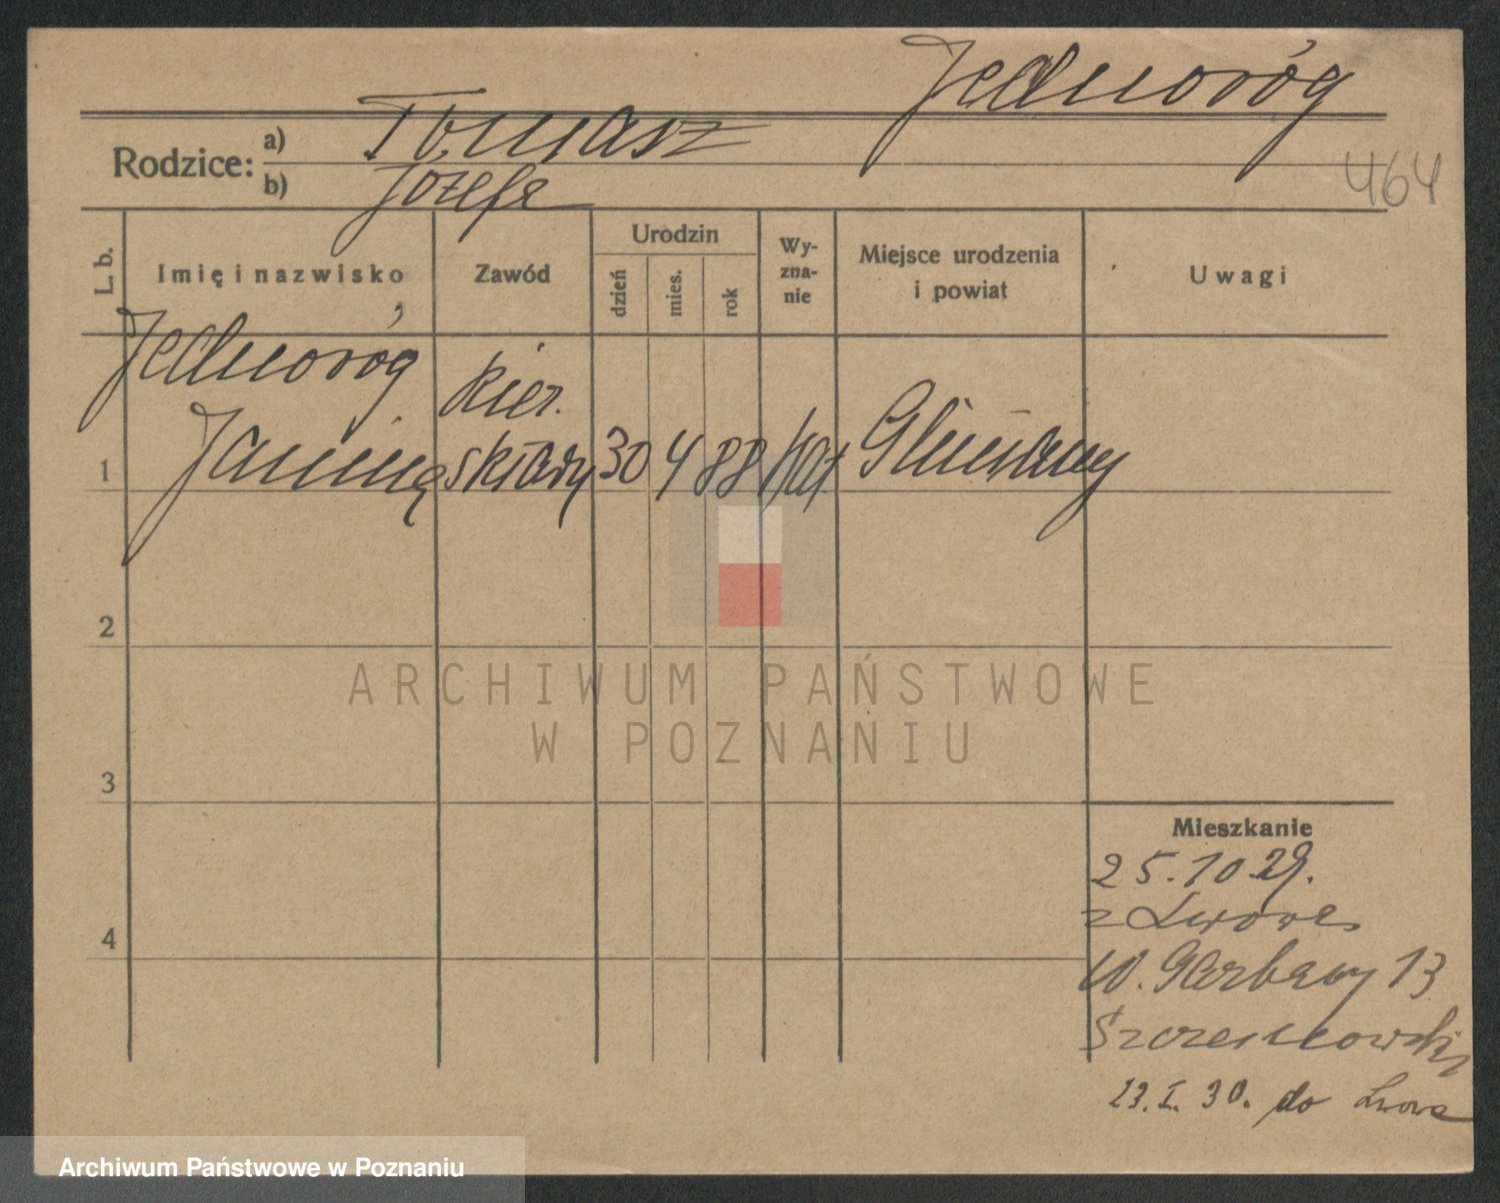 Jednoróg
Rodzice: a) Tomasz
b) Józefa
464
L. b.
Imię i nazwisko
Zawód
Urodzin
dzień
mies.
rok
Wy-
zna-
nie
Miejsce urodzenia
i powiat
Uwagi
Jednoróg
Janina
kier.
składu
1
30 4 88 kat
Gliniany
2
3
4
Mieszkanie
25.10 29.
z Lwowa
W. Garbary 13
23.I. 30. do Lwowa
ARCHIWUM PAŃSTWOWE
W POZNANIU
Archiwum Państwowe w Poznaniu